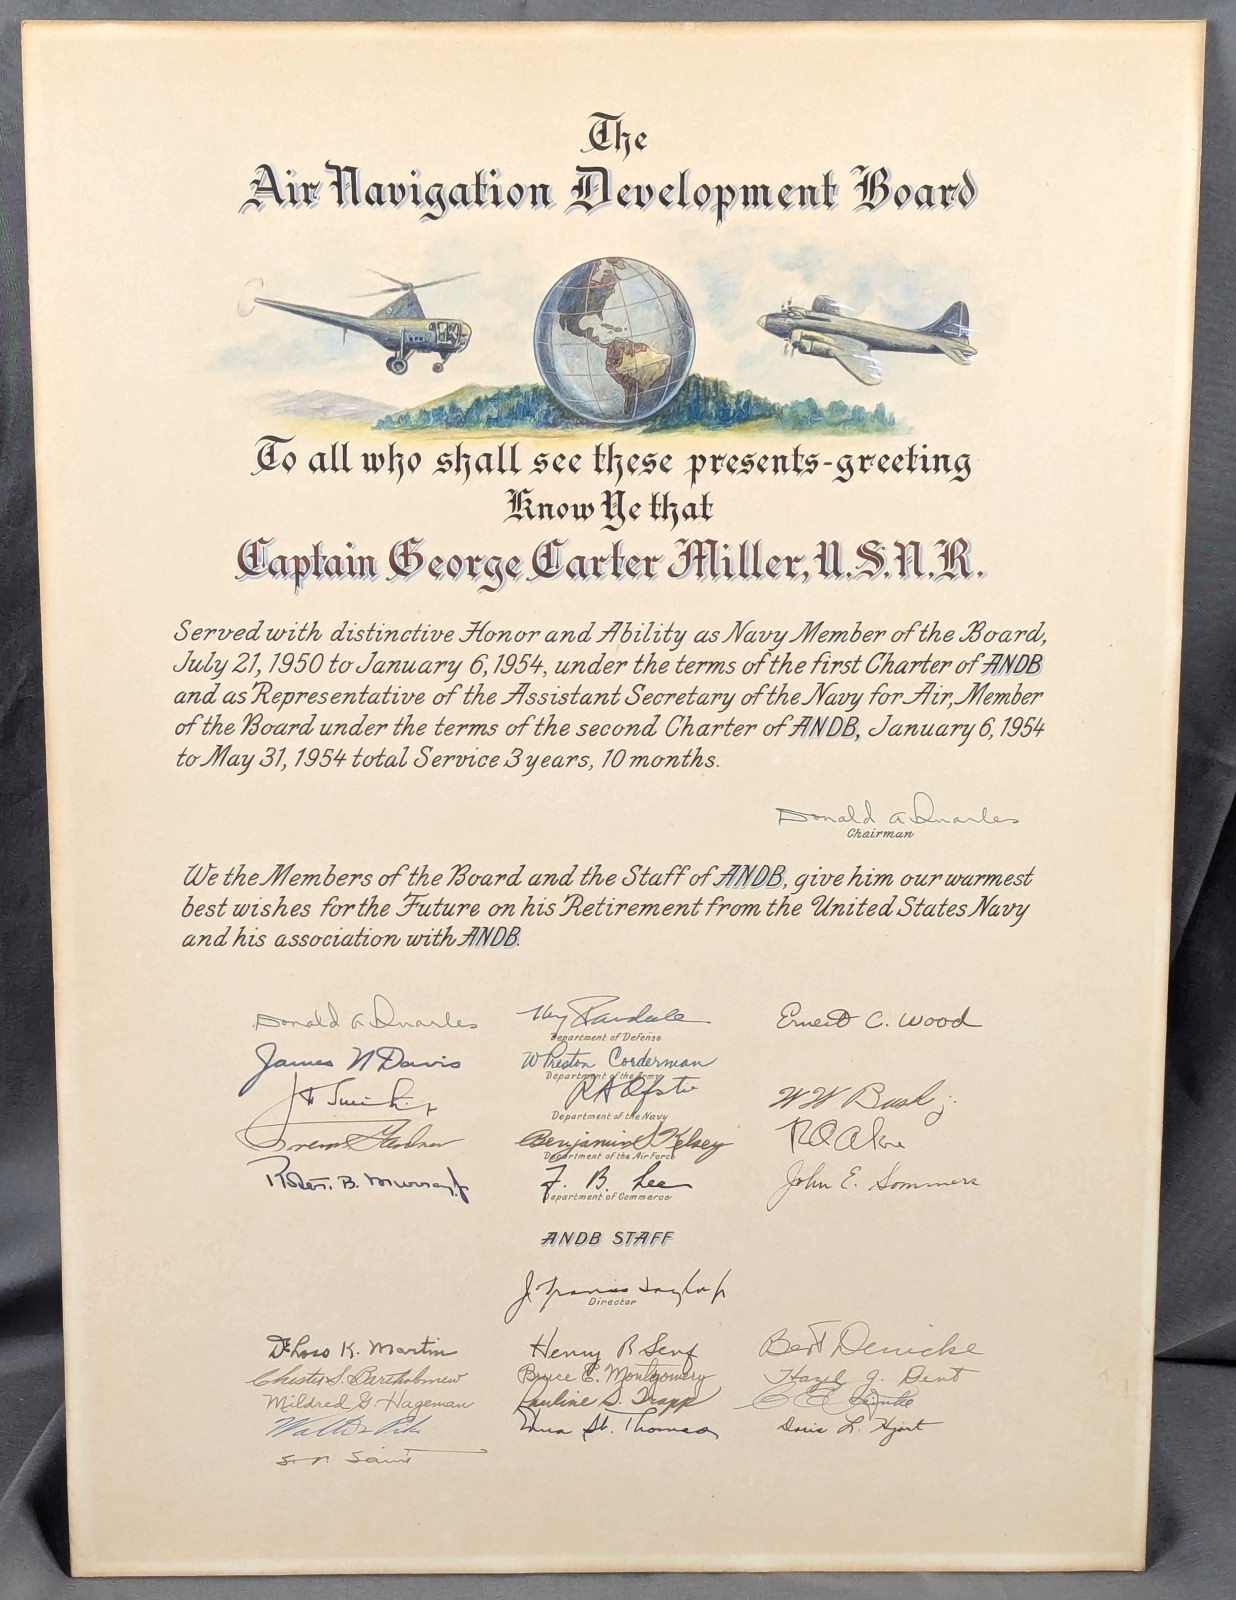 The
Air Navigation Development Board
To all who shall see these presents-greeting
Know Ye that
Captain George Carter Miller, U.S.N.R.
Served with distinctive Honor and Ability as Navy Member of the Board,
July 21, 1950 to January 6, 1954, under the terms of the first Charter of ANDB
and as Representative of the Assistant Secretary of the Navy for Air, Member
of the Board under the terms of the second Charter of ANDB, January 6, 1954
to May 31, 1954 total Service 3 years, 10 months.
Donald A Quarles
Chairman
We the Members of the Board and the Staff of ANDB, give him our warmest
best wishes for the Future on his Retirement from the United States Navy
and his association with ANDB.
Donald A Quarles Ernest C. Wood
Department of Defense
James N Davis W Preston Corderman
Department of the Army
R A Ofstie W W Bush Jr.
Department of the Navy
Gardner Benjamin S Kelsey
Department of the Air Force
Robt. B. Murray Jr F. B. Lee John E. Sommers
Department of Commerce
ANDB STAFF
J. Francis Taylor Jr
Director
DeLoss K. Martin Henry R Senf Bert Denicke
Chester S. Bartholomew Bruce E. Montgomery Hazel J. Dent
Mildred G. Hageman Pauline S. Trapp
Edna St. Thomas Doris L. Hjort
Saint